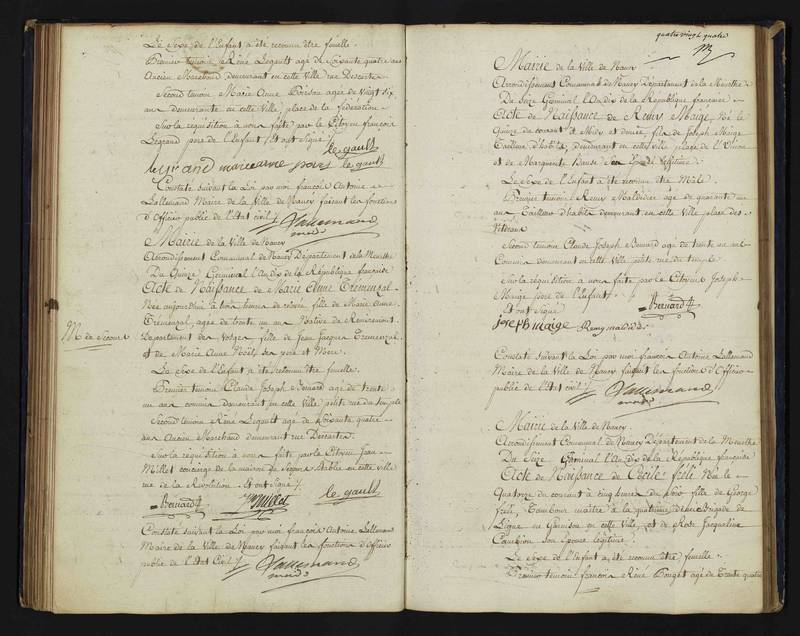 Le Sexe de l'Enfant a été reconnu être femelle.
Premier témoin René Legault agé de soixante quatre ans
Ancien Marchand demeurant en cette Ville rue Descartes
Second témoin Marie Anne Poirson agée de Vingt six
ans demeurante en cette Ville, place de la fédération
Sur la réquisition à nous faite par le Citoyen françois
Legrand pere de l'Enfant Et ont Signé ./.
le gault
legrand marieanne
le gault
Constaté suivant la Loi par moi françois Antoine
Lallemand Maire de la Ville de Nancy faisant les fonctions
d'Officier public de l'Etat civil ./. Lallemand
maire
Mairie de la Ville de Nancy
Arrondissement Communal de Nancy Département de la Meurthe
Du Quinze Germinal l'An dix de la République française
Acte de Naissance de Marie Anne Trémenzal
Née aujourd'hui à trois heures de relevée fille de Marie Anne
Trémenzal, agée de trente un ans Native de Remiremont
M. de Secours
Département des Vosges, fille de Jean Jacques Tremenzal
et de Marie Anne Noël, ses pere et Mere.
Le Sexe de l'Enfant a été reconnu être femelle.
Premier témoin Claude Joseph Bernard agé de trente
un ans commis demeurant en cette Ville petite rue du temple
Second témoin René Legault agé de Soixante quatre
ans Ancien Marchand demeurant rue Descartes.
Sur la réquisition à nous faite par le Citoyen Jean
Millet concierge de la maison de Secours établie en cette ville
rue de la Révolution Et ont signé ./.
Bernard Millet le gault
Constaté suivant la Loi par moi françois Antoine Lallemand
Maire de la Ville de Nancy faisant les fonctions d'Officier
public de l'Etat Civil ./. Lallemand
maire
quatre vingt quatre
Mairie de la Ville de Nancy
Arrondissement Communal de Nancy Département de la Meurthe
Du Seize Germinal l'An dix de la République française
Acte de Naissance de Remy Maige, Né le
Quinze du courant à Midi et demie, fils de Joseph Maige
Tailleur d'habits, demeurant en cette ville place de l'Union
et de Marguerite son Epouse légitime.
Le Sexe de l'Enfant a été reconnu être Mâle.
Premier témoin Remy Maldidier agé de quarante un
ans Tailleur d'habits demeurant en cette ville place des
Vétérans
Second témoin Claude Joseph Bernard agé de trente un ans
Commis demeurant en cette Ville petite rue du temple
Sur la réquisition à nous faite par le Citoyen Joseph
Maige pere de l'Enfant.
Et ont Signé Bernard
joseph maige Remy maldidie
Constaté suivant la Loi par moi françois Antoine Lallemand
Maire de la Ville de Nancy faisant les fonctions d'Officier
public de l'Etat civil ./. Lallemand
maire
Mairie de la Ville de Nancy.
Arrondissement Communal de Nancy Département de la Meurthe
Du Seize Germinal l'An dix de la République française
Acte de Naissance de Cécile frêli Née le
Quatorze du courant à cinq heures du soir fille de George
frêli, Tambour maitre à la quatrième demi Brigade de
Ligne en Garnison en cette Ville, et de Rose Jacqueline
son Epouse légitime.
Le Sexe de l'Enfant a été reconnu être femelle.
Premier témoin françois René Pouget agé de Trente quatre